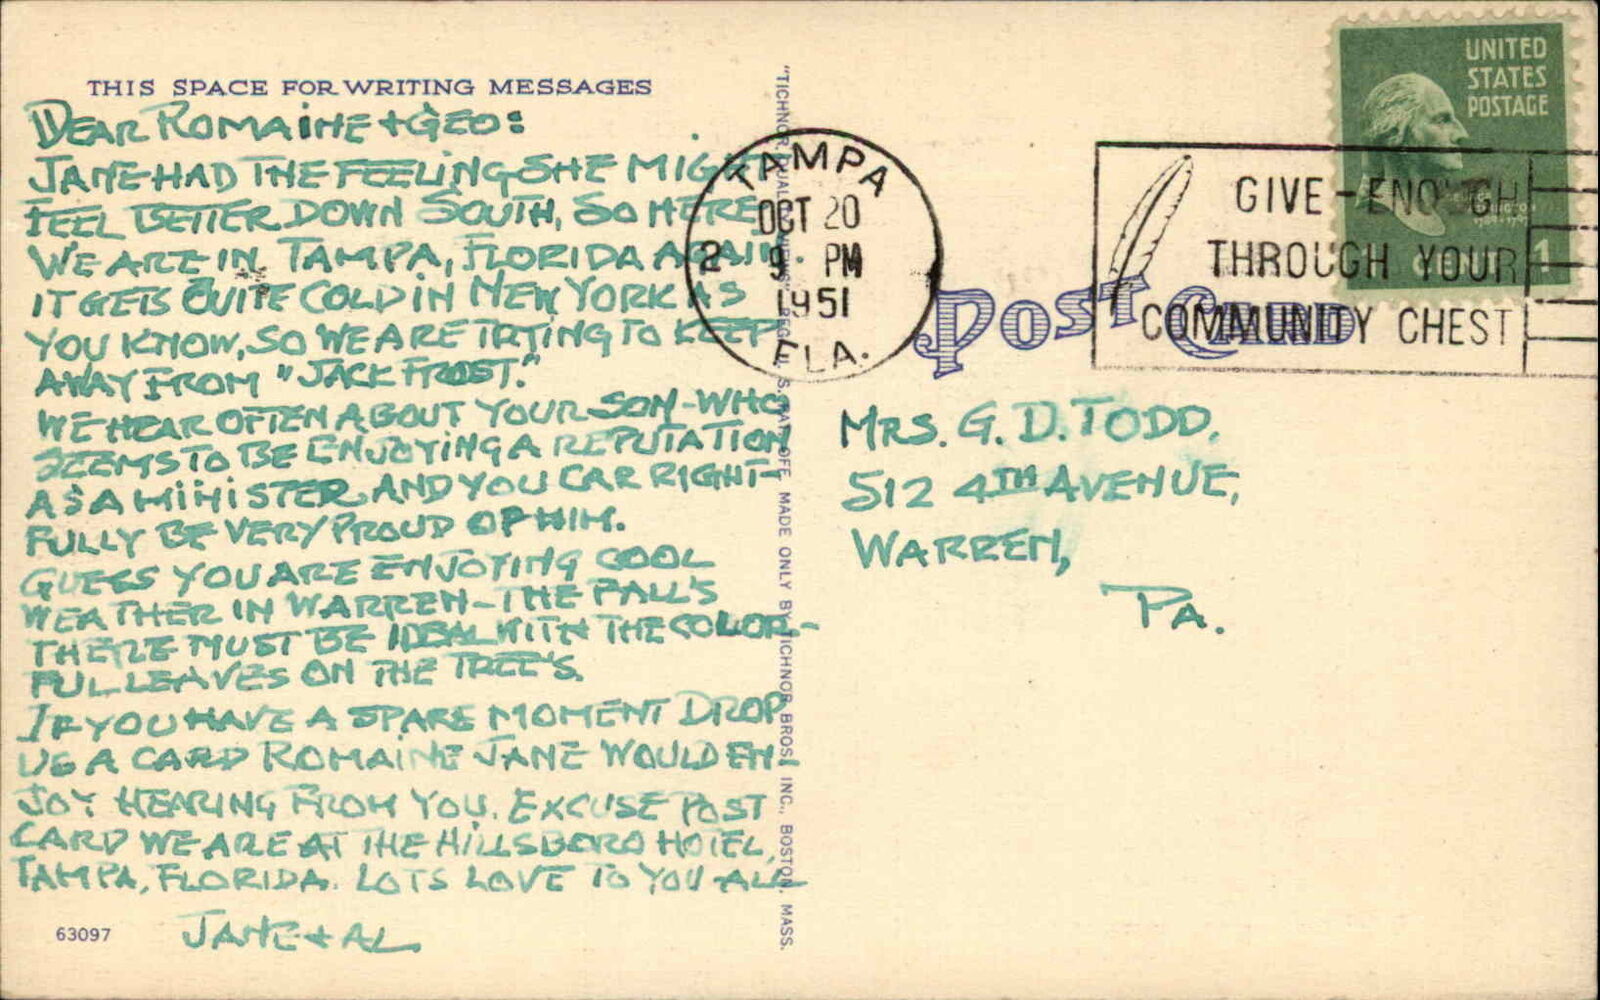 THIS SPACE FOR WRITING MESSAGES
DEAR ROMAINE + GEO:
JANE HAD THE FEELING SHE MIGHT
FEEL BETTER DOWN SOUTH, SO HERE
WE ARE IN TAMPA, FLORIDA AGAIN.
IT GETS QUITE COLD IN NEW YORK AS
YOU KNOW, SO WE ARE TRYING TO KEEP
AWAY FROM "JACK FROST."
WE HEAR OFTEN ABOUT YOUR SON-WHO
SEEMS TO BE ENJOYING A REPUTATION
AS A MINISTER AND YOU CAR RIGHT-
FULLY BE VERY PROUD OF HIM.
GUESS YOU ARE ENJOYING COOL
WEATHER IN WARREN-THE FALL'S
THERE MUST BE IDEAL WITH THE COLOR-
FUL LEAVES ON THE TREE'S.
IF YOU HAVE A SPARE MOMENT DROP
US A CARD ROMAINE JANE WOULD EN-
JOY HEARING FROM YOU. EXCUSE POST
CARD WE ARE AT THE HILLSBORO HOTEL,
TAMPA, FLORIDA. LOTS LOVE TO YOU ALL-
JANE + AL.
63097
"TICHNOR QUALITY VIEWS" REG. U. S. PAT. OFF. MADE ONLY BY TICHNOR BROS., INC., BOSTON, MASS.
TAMPA
OCT 20
2 9 PM
1951
FLA.
GIVE-ENOUGH
THROUGH YOUR
COMMUNITY CHEST
UNITED
STATES
POSTAGE
1
POST CARD
MRS. G. D. TODD,
512 4TH AVENUE,
WARREN,
PA.